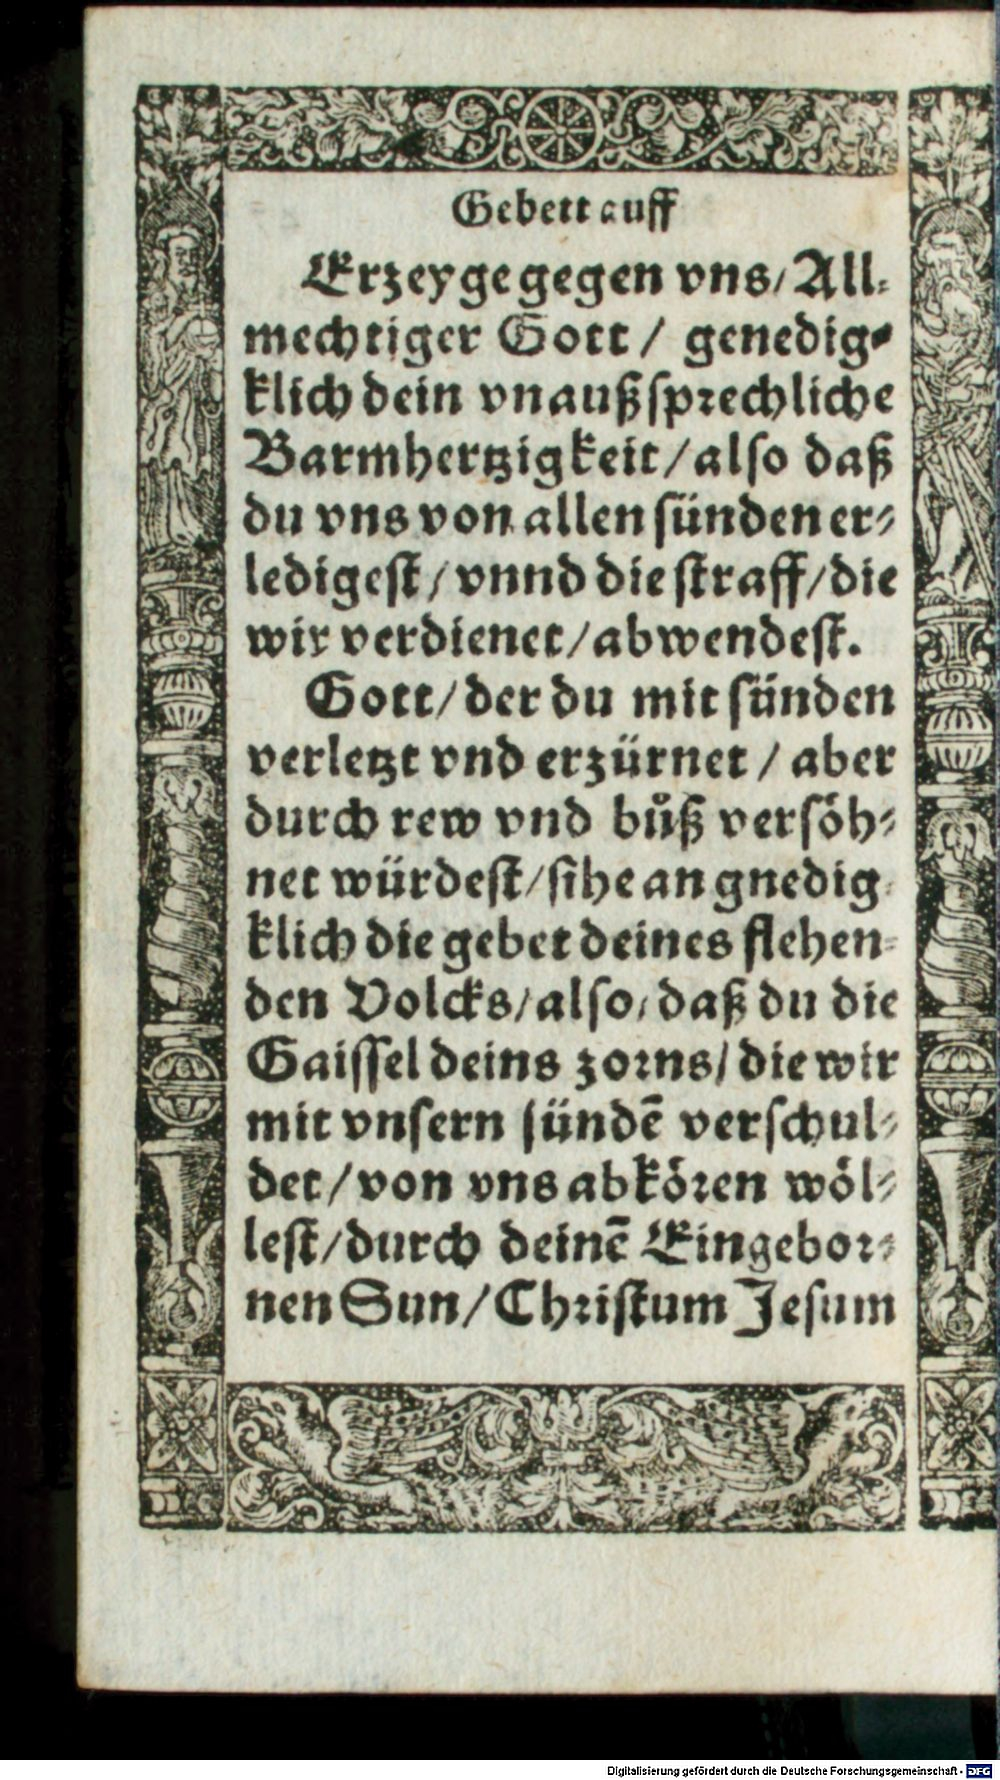 Gebett auff
Erzeyge gegen vns/ All⸗
mechtiger Gott/ genedig⸗
klich dein vnaußſprechliche
Barmhertzigkeit/ alſo daß
du vns von allen ſünden er⸗
ledigeſt/ vnnd die ſtraff/ die
wir verdienet/ abwendeſt.
Gott/ der du mit ſünden
verletzt vnd erzürnet/ aber
durch rew vnd bůß verſöh⸗
net würdeſt/ ſihe an gnedig⸗
klich die gebet deines flehen⸗
den Volcks/ alſo/ daß du die
Gaiſſel deins zorns/ die wir
mit vnſern ſündē verſchul⸗
det/ von vns abkören wöl⸗
leſt/ durch deinē Eingebor⸗
nen Sun/ Chriſtum Jeſum
Digitalisierung gefördert durch die Deutsche Forschungsgemeinschaft - DFG